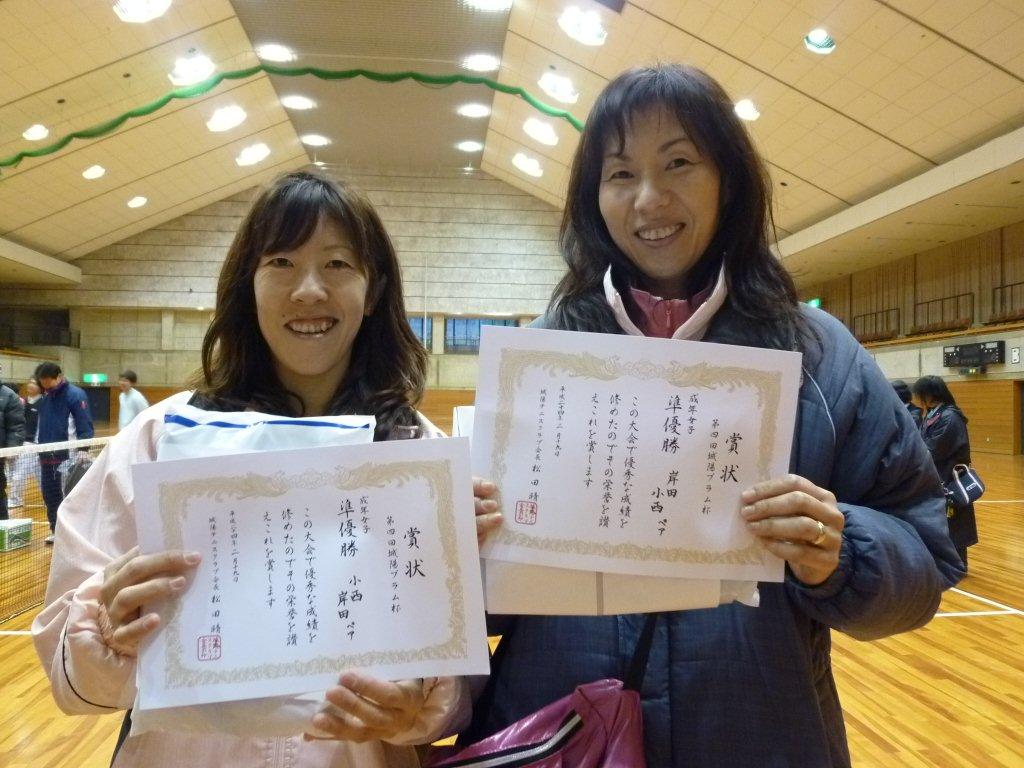 賞状
第四回城陽プラム杯
成年女子
準優勝 小西 岸田 ペア
この大会で優秀な成績を
修めたのでその栄誉を讃
えこれを賞します
平成二十四年二月十九日
城陽テニスクラブ会長 松田 精
賞状
第四回城陽プラム杯
成年女子
準優勝 岸田 小西 ペア
この大会で優秀な成績を
修めたのでその栄誉を讃
えこれを賞します
平成二十四年二月十九日
城陽テニスクラブ会長 松田 精